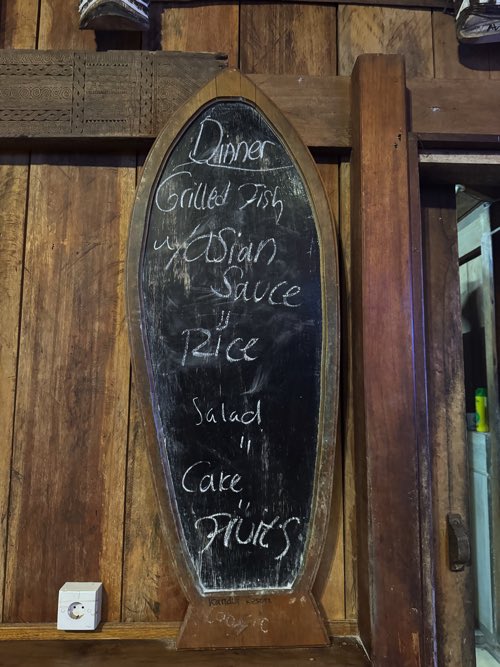 Dinner
Grilled Fish
w/ asian
Sauce
"
Rice
Salad
"
Cake
"
Fruits